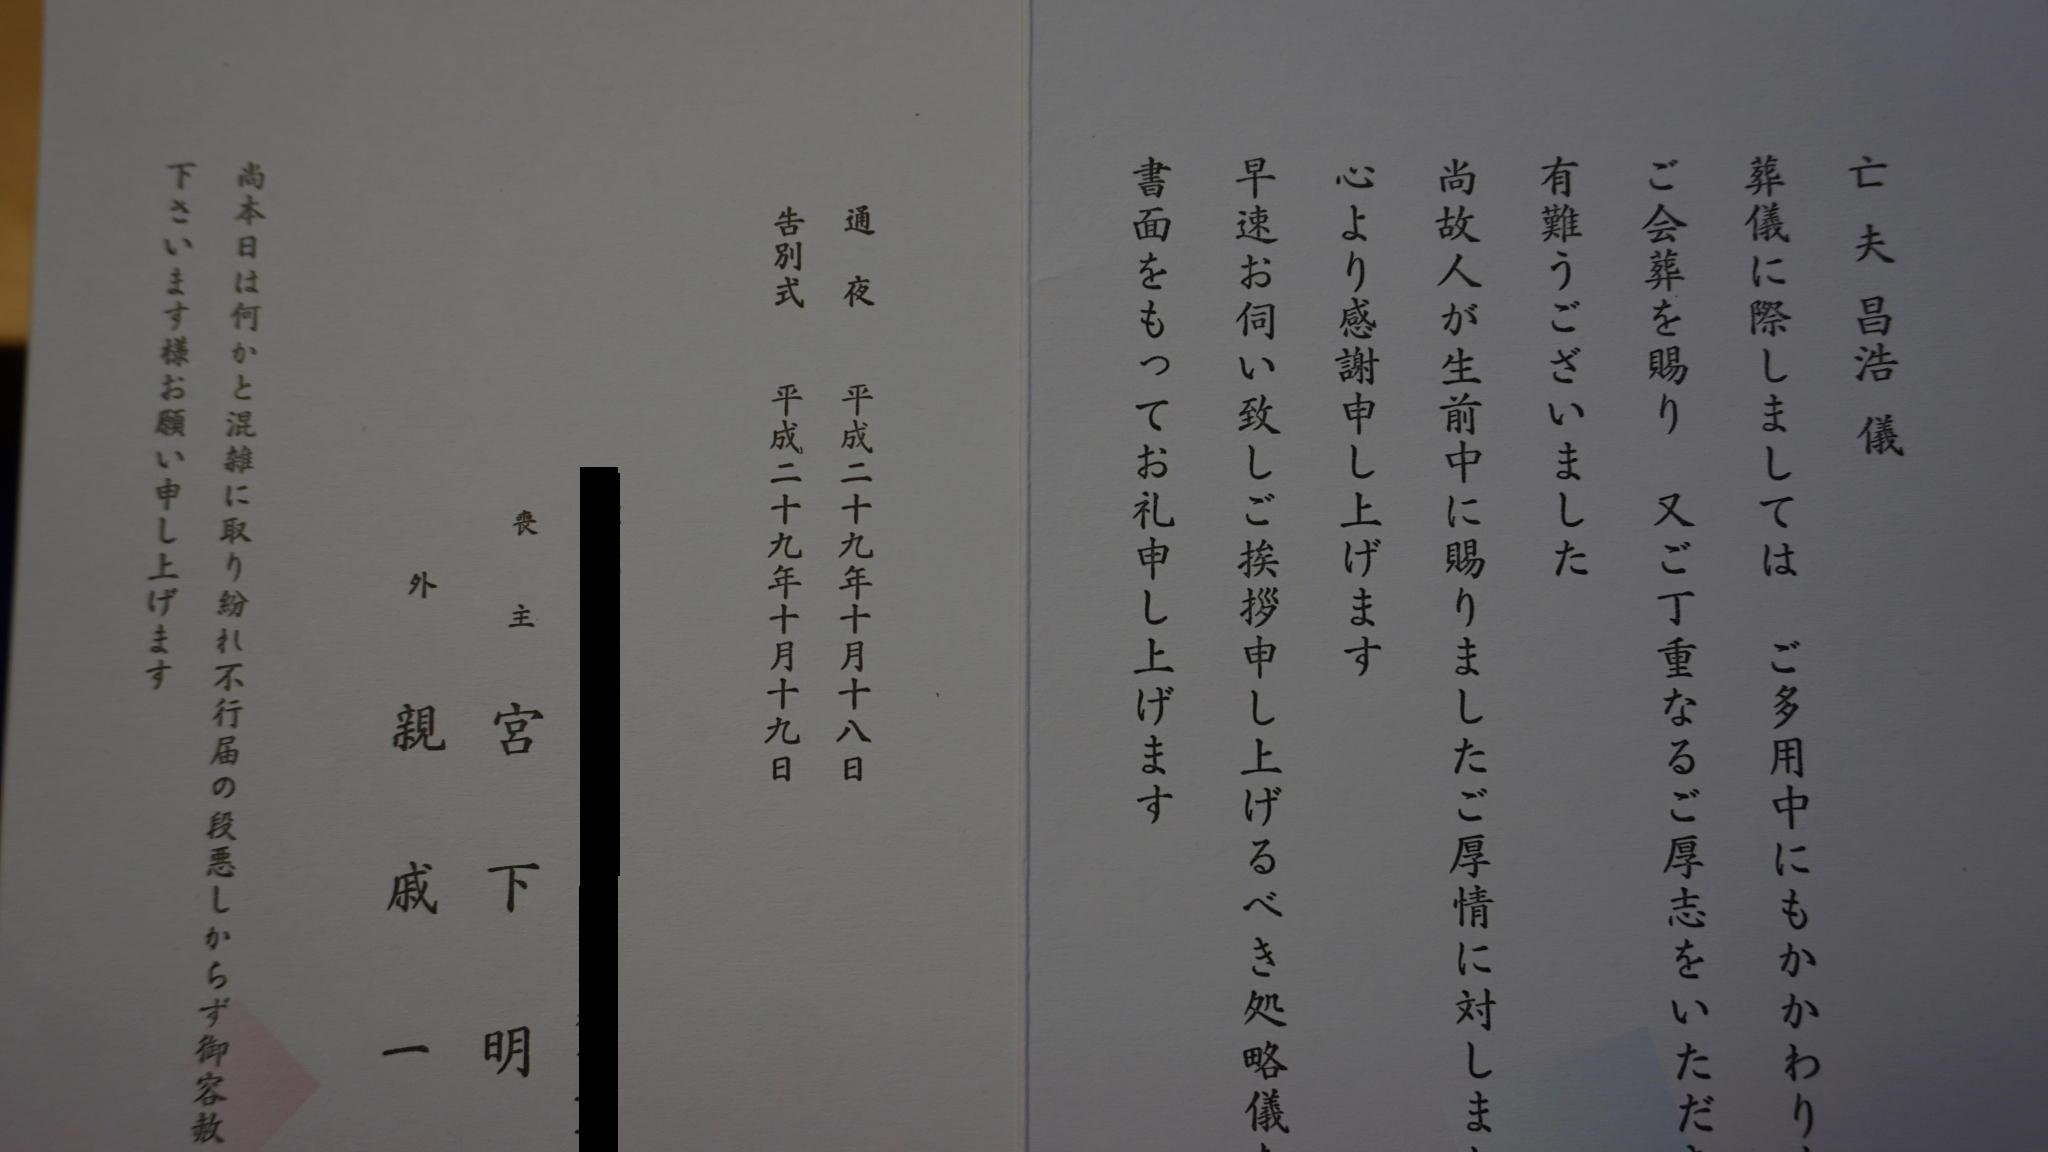 亡 夫 昌浩 儀
葬儀に際しましては ご多用中にもかかわり
ご会葬を賜り 又ご丁重なるご厚志をいただ
有難うございました
尚故人が生前中に賜りましたご厚情に対しま
心より感謝申し上げます
早速お伺い致しご挨拶申し上げるべき処略儀
書面をもってお礼申し上げます
通 夜 平成二十九年十月十八日
告別式 平成二十九年十月十九日
喪 主 宮 下 明
外 親 戚 一
尚本日は何かと混雑に取り紛れ不行届の段悪しからず御容赦
下さいます様お願い申し上げます